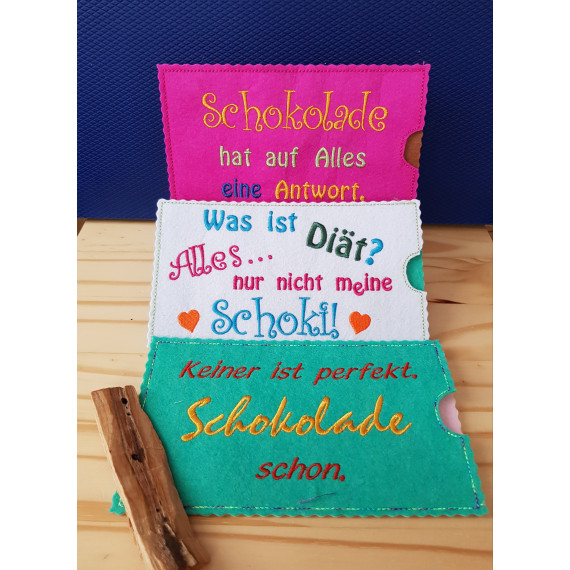 Schokolade
hat auf Alles
eine Antwort.
Was ist Diät?
Alles...
nur nicht meine
Schoki!
Keiner ist perfekt.
Schokolade
schon.